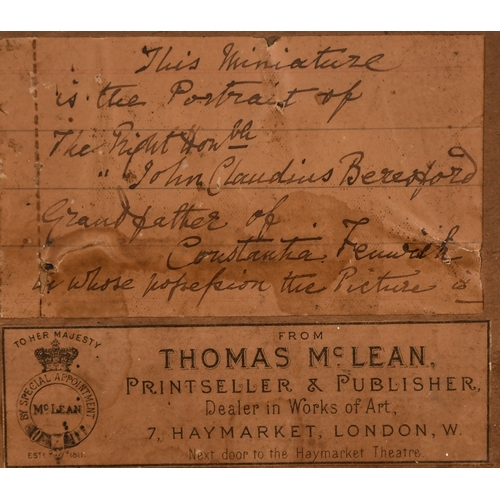 This Miniature
is the Portrait of
The Right Honble
" John Claudius Beresford
Grandfather of
Constantia Fenwick
in whose possession the Picture is
TO HER MAJESTY
BY SPECIAL APPOINTMENT
McLEAN
ESTD 1811.
FROM
THOMAS McLEAN,
PRINTSELLER & PUBLISHER,
Dealer in Works of Art,
7, HAYMARKET, LONDON, W.
Next door to the Haymarket Theatre.